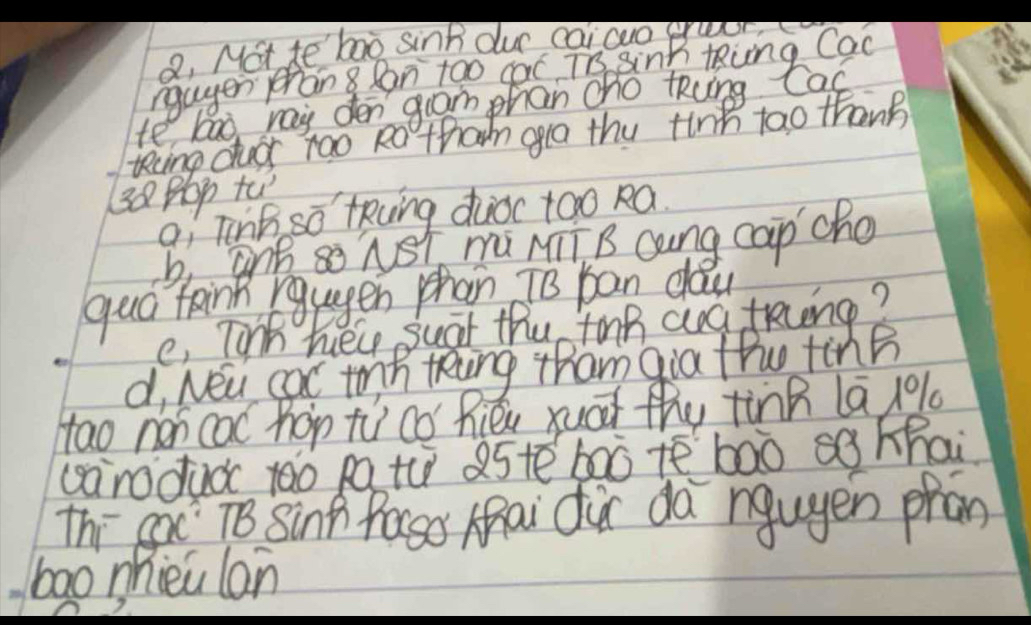 2, Một tế bào sinh dục cái của
nguyên phân 8 lần tạo các TB sinh trứng Các
tế bào này đến giảm phân cho trứng Các
trứng được tạo Ra tham gia thụ tinh tạo thành
32 hợp tử
a, Tính số trứng được tạo Ra.
b, Tính số NST mà MTTB cung cấp cho
quá trình nguyên phân TB ban đầu
c, Tính hiệu suất thụ tinh của trứng?
d, Nếu các tinh trùng tham gia thụ tinh
tạo nên các hợp tử có hiệu xuất thụ tinh là 1%
và nó được tạo Ra từ 25 tế bào tế bào sơ khai
Thì các TB Sinh sơ khai đực đã nguyên phân
bao nhiêu lần